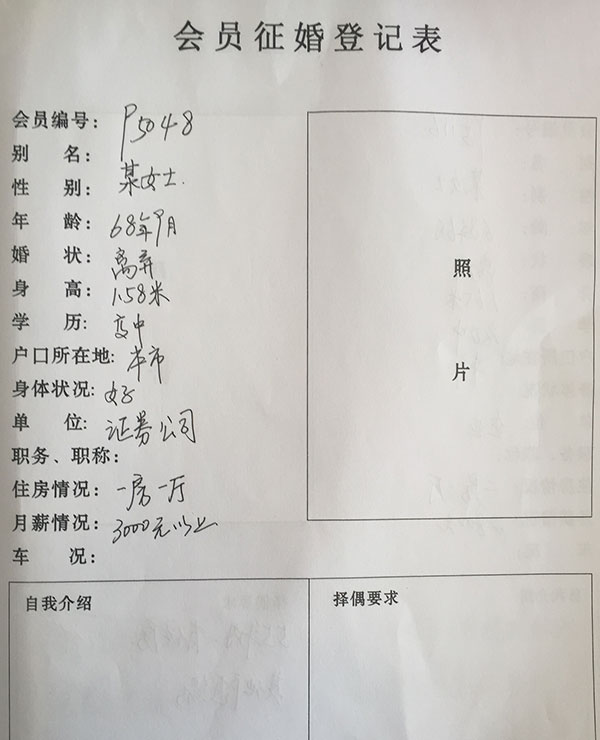 会员征婚登记表
会员编号: P5048
别 名:
性 别: 某女士.
年 龄: 68年9月
婚 状: 离异
身 高: 1.58米
学 历: 高中
户口所在地: 本市
身体状况: 好
单 位: 证券公司
职务、职称:
住房情况: 一房一厅
月薪情况: 3000元以上
车 况:
照
片
自我介绍
择偶要求